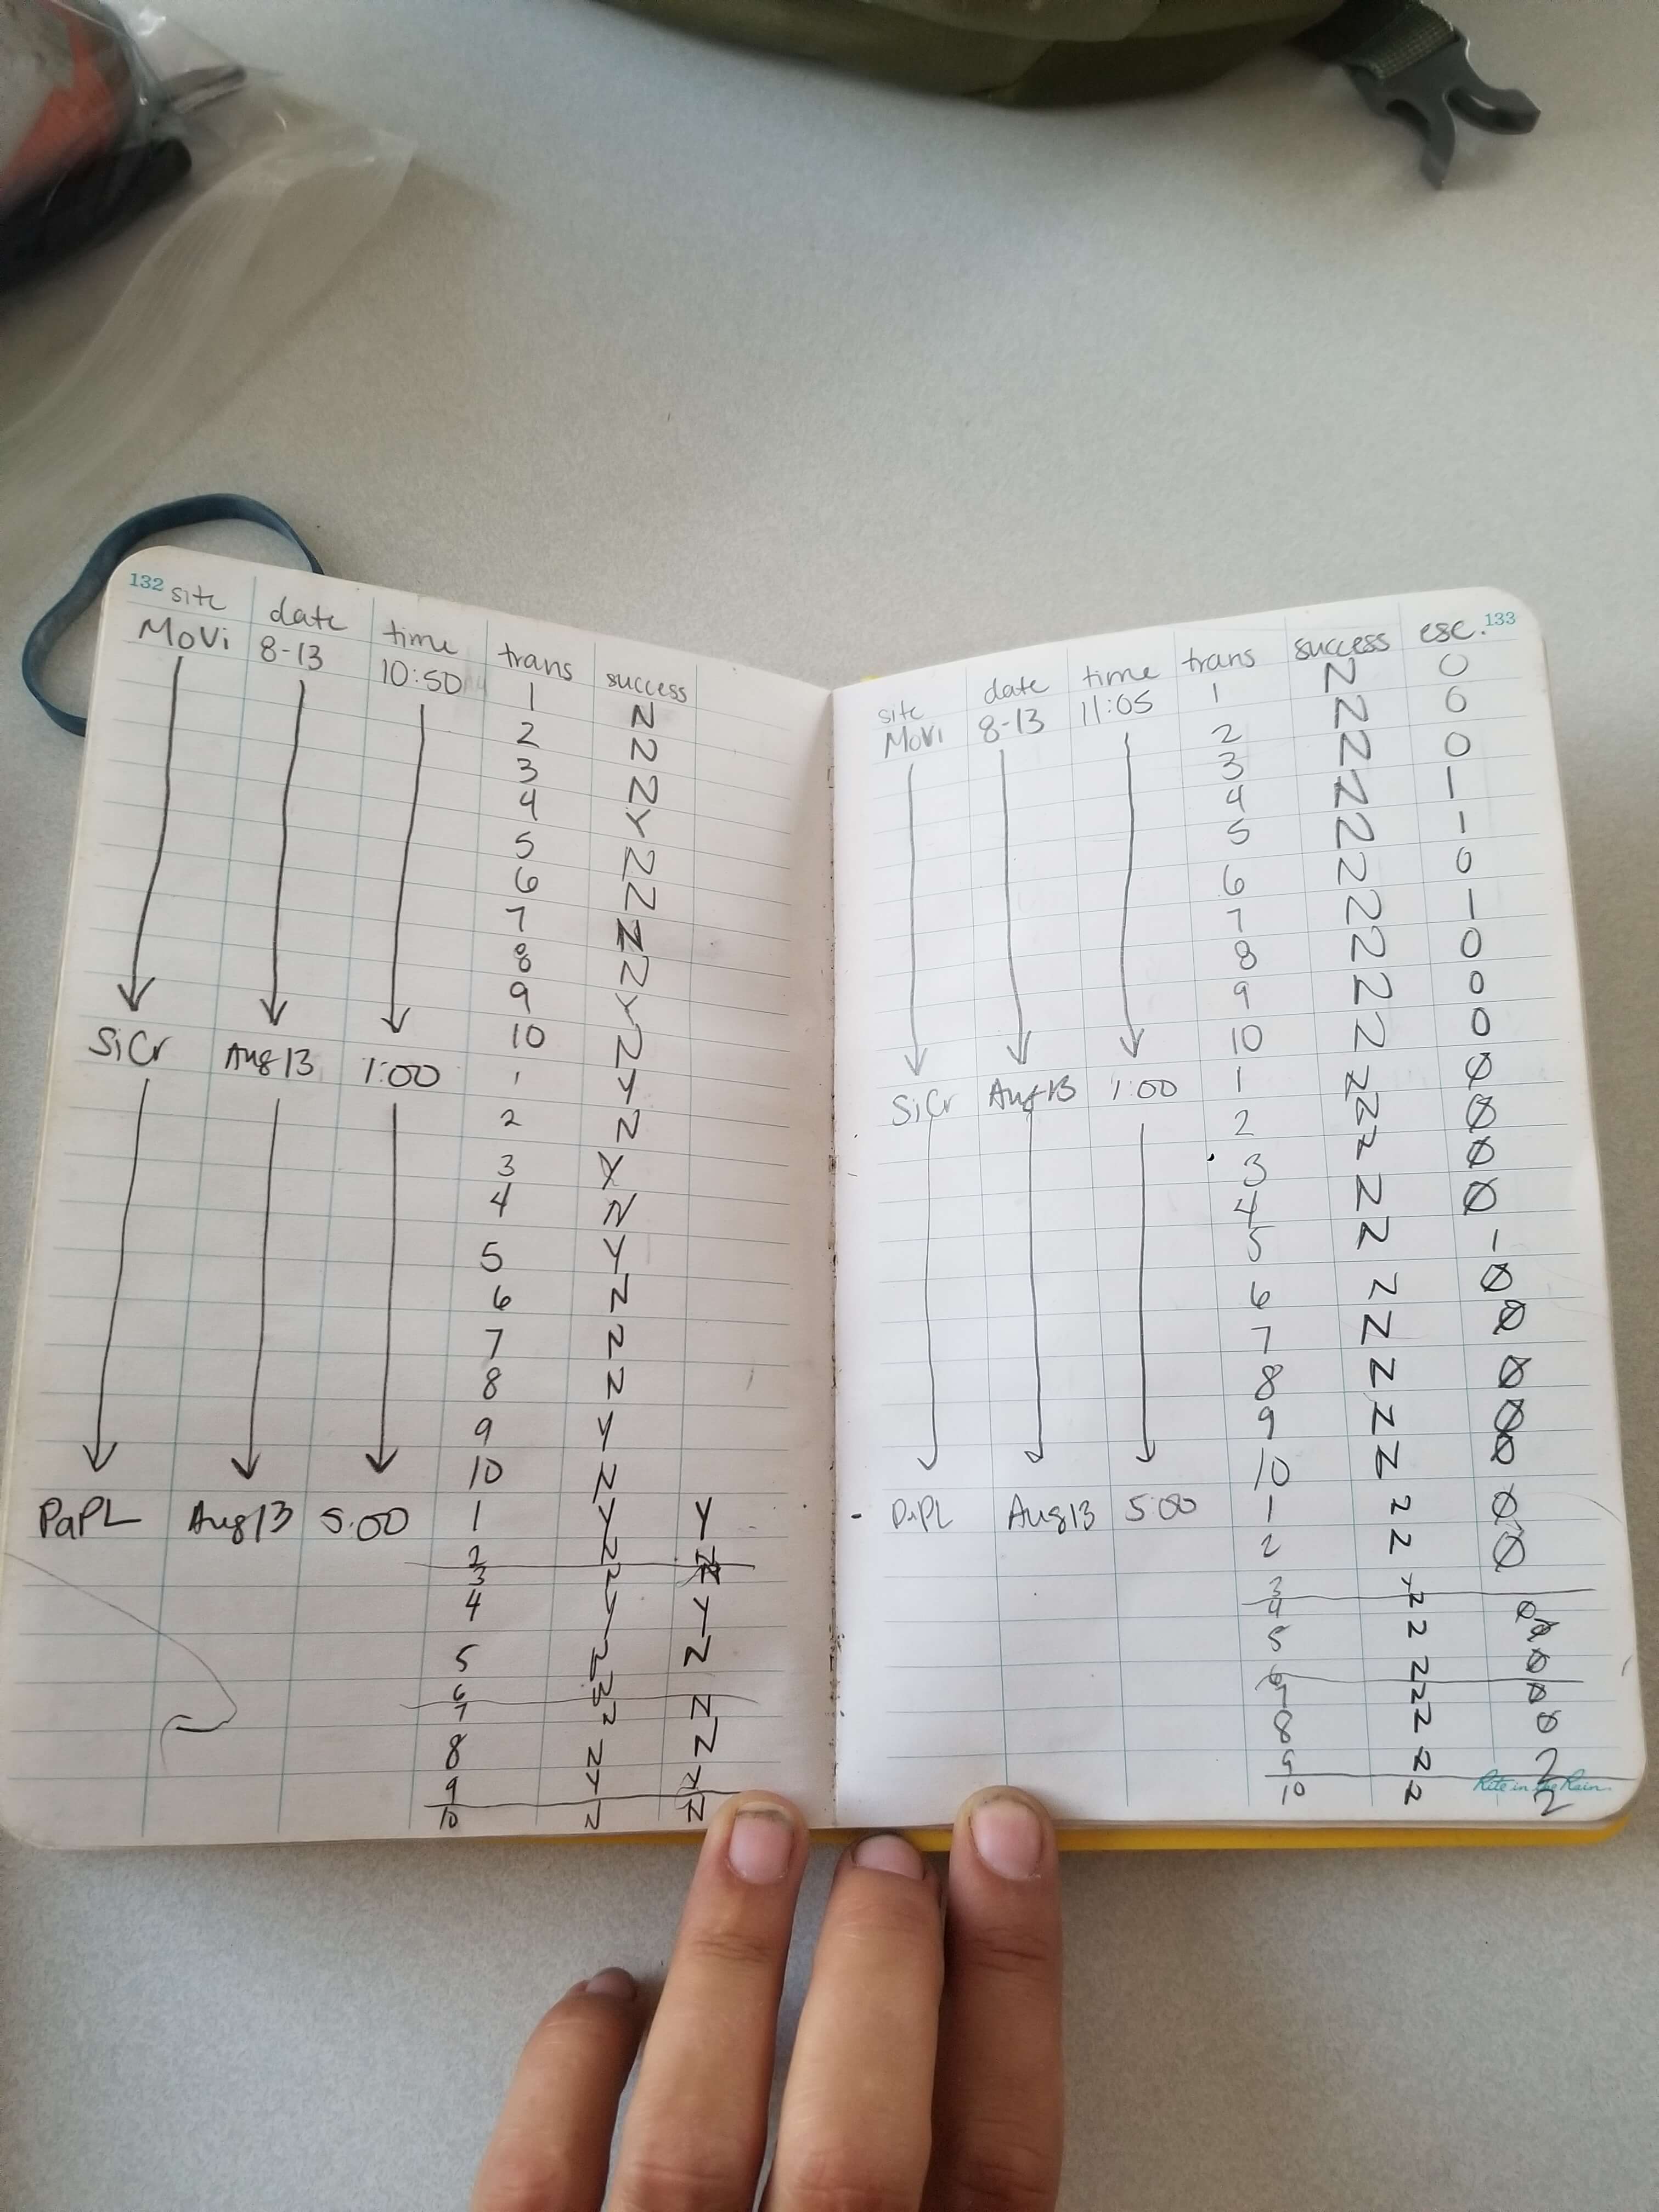 132
site date time trans success
MoVi 8-13 10:50 1 N
2 N
3 N
4 Y
5 N
6 N
7 N
8 N
9 Y
10 N
SiCr Aug 13 1:00 1 Y
2 N
3 Y
4 N
5 Y
6 N
7 N
8 N
9 Y
10 N
PaPL Aug 13 5:00 1 Y Y
2 N
3 N
4 Y Y
5 N N
6
7 N N
8 N N
9 Y Y
10 N N
133
site date time trans success esc.
MoVi 8-13 11:05 1 N 0
2 N 0
3 N 0
4 N 1
5 N 1
6 N 0
7 N 1
8 N 0
9 N 0
10 N 0
SiCr Aug 13 1:00 1 N Ø
2 N Ø
3 N Ø
4 N Ø
5 N 1
6 N Ø
7 N Ø
8 N Ø
9 N Ø
10 N Ø
PaPL Aug 13 5:00 1 N Ø
2 N Ø
3 Y Ø
4 N Ø
5 N Ø
6 N Ø
7 N Ø
8 N Ø
9 N 2
10 N 2
Rite in the Rain